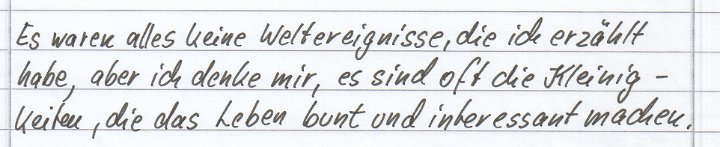 Es waren alles keine Weltereignisse, die ich erzählt
habe, aber ich denke mir, es sind oft die Kleinig-
keiten, die das Leben bunt und interessant machen.